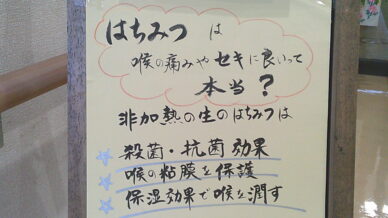 はちみつは
喉の痛みやセキに良いって
本当？
非加熱の生のはちみつは
殺菌・抗菌効果
喉の粘膜を保護
保湿効果で喉を潤す